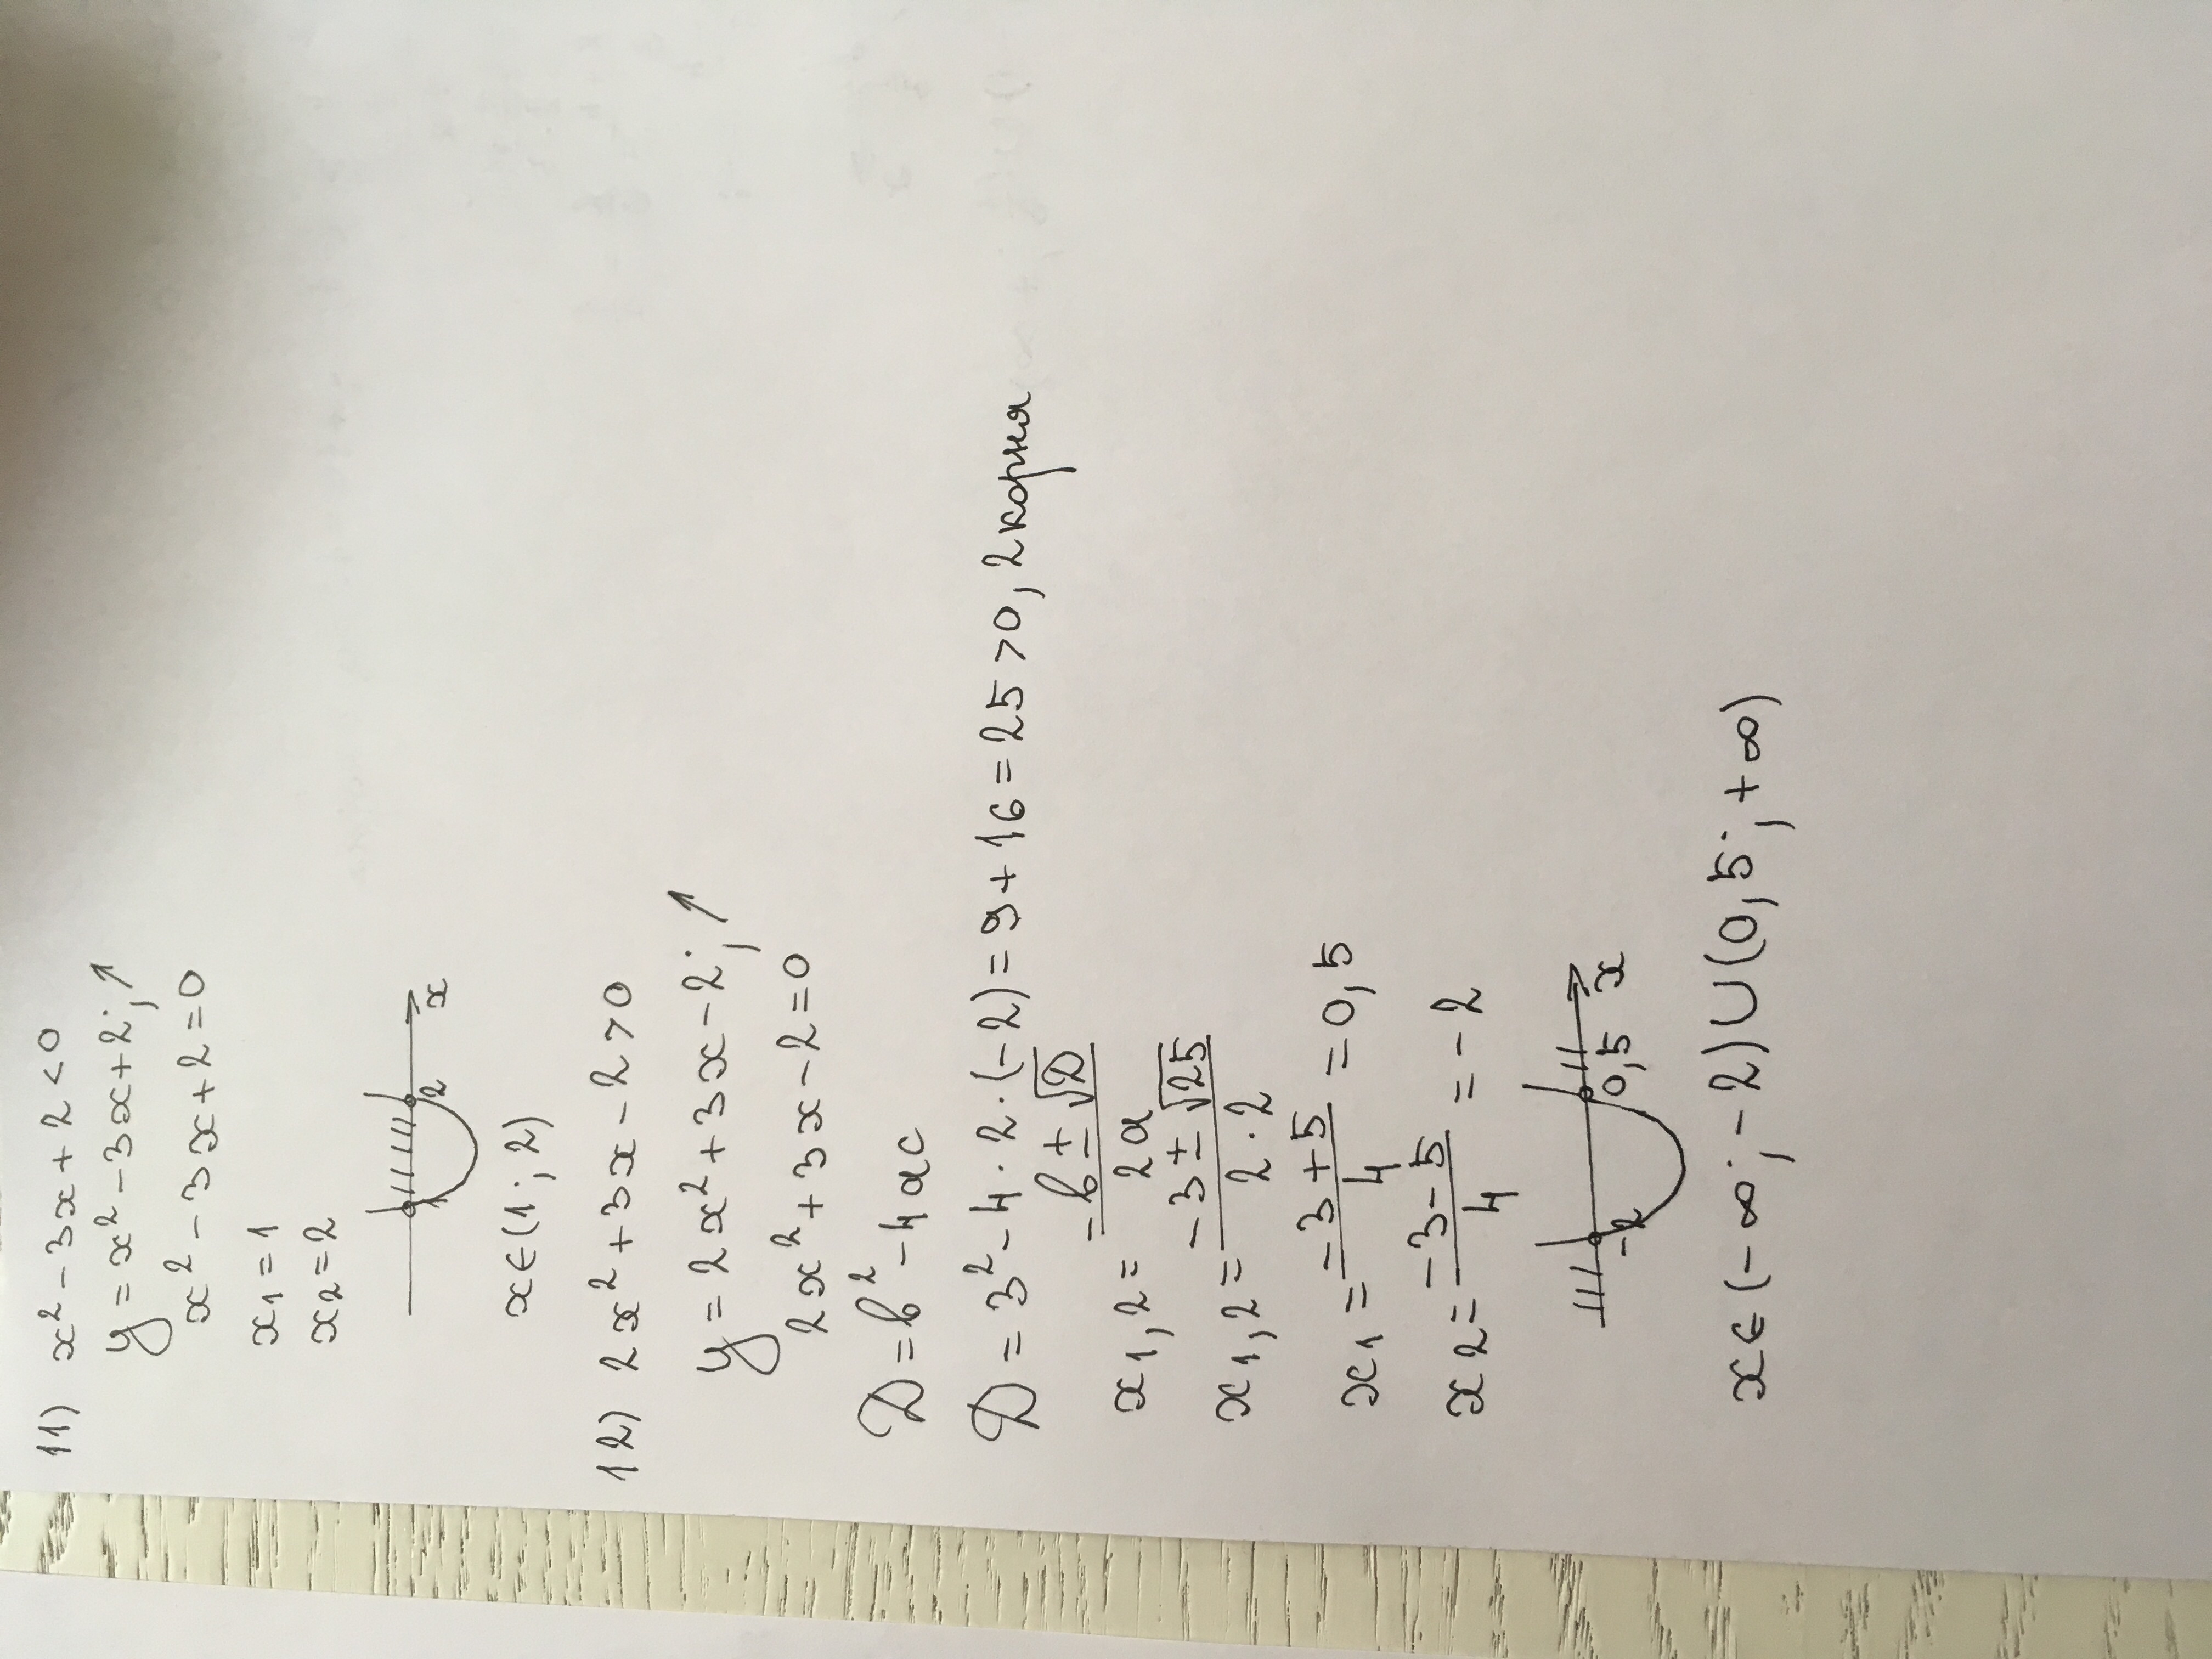 11) x² - 3x + 2 < 0
y = x² - 3x + 2; ↑
x² - 3x + 2 = 0
x₁ = 1
x₂ = 2
1 2 x
x ∈ (1; 2)
12) 2x² + 3x - 2 > 0
y = 2x² + 3x - 2; ↑
2x² + 3x - 2 = 0
D = b² - 4ac
D = 3² - 4 · 2 · (-2) = 9 + 16 = 25 > 0, 2 корня
x₁,₂ = (-b ± √D) / 2a
x₁,₂ = (-3 ± √25) / 2 · 2
x₁ = (-3 + 5) / 4 = 0,5
x₂ = (-3 - 5) / 4 = -2
-2 0,5 x
x ∈ (-∞; -2) ∪ (0,5; +∞)